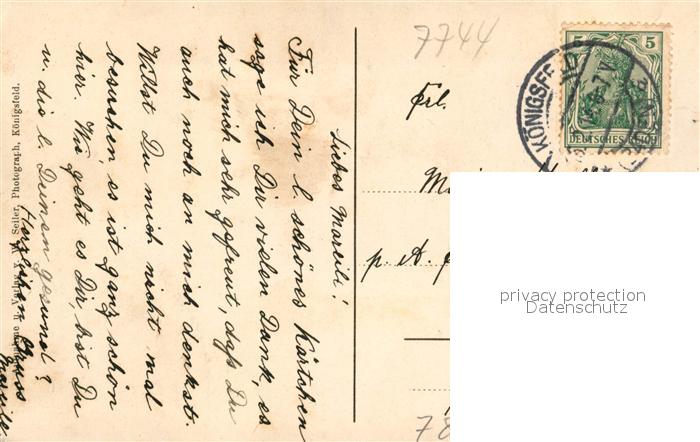 Liebes Mareili!
Für Dein l. schönes Kärtchen
sage ich Dir vielen Dank, es
hat mich sehr gefreut, daß Du
auch noch an mich denkst.
Willst Du mich nicht mal
besuchen, es ist ganz schön
hier. Wie geht es Dir, bist Du
u. die l. Deinen gesund?
Herzlichen Gruss
Seiler, Photograph, Königsfeld.
7744
Frl.
p. A.
5 5
DEUTSCHES REICH
KÖNIGSF
privacy protection
Datenschutz
78